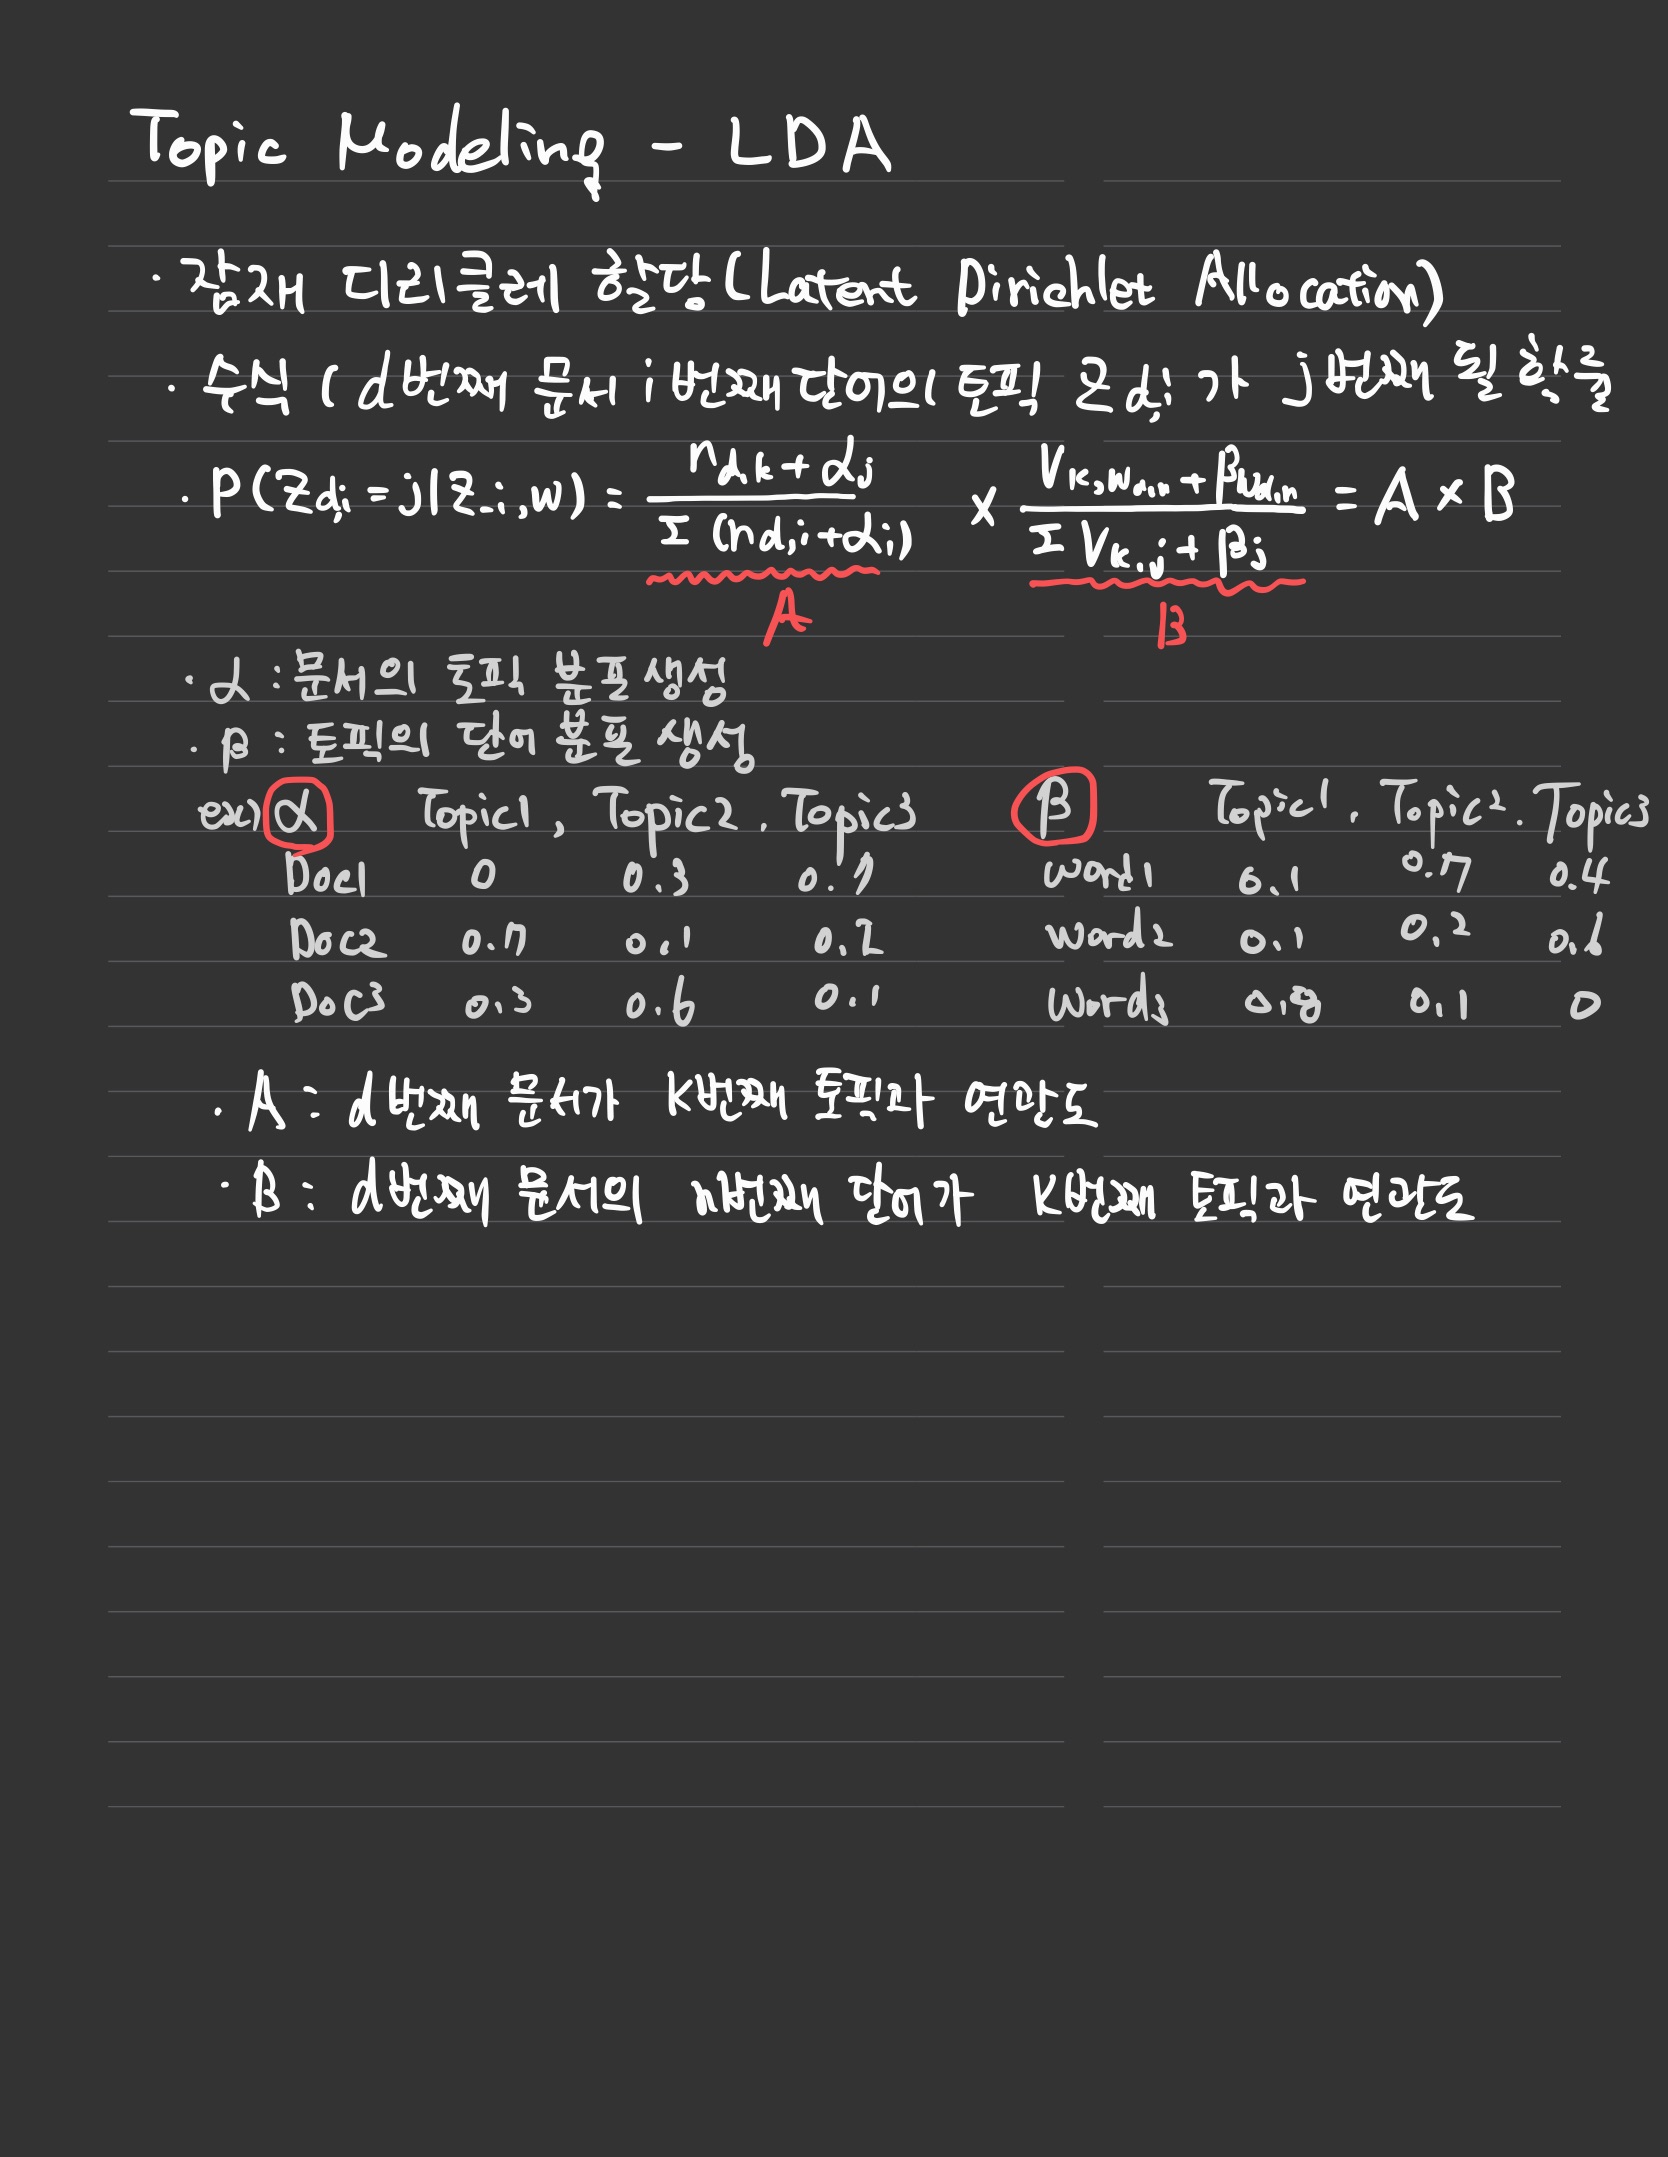 Topic Modeling - LDA
· 잠재 디리클레 할당 (Latent Dirichlet Allocation)
· 수식 ( d번째 문서 i번째 단어의 토픽 Z d,i 가 j번째 될 확률
· P(Zd,i = j | Z-i, w) = (nd,k + αj) / (Σ (nd,i + αi)) × (Vk,wd,n + βwd,n) / (Σ Vk,j + βj) = A × B
A B
· α : 문서의 토픽 분포 생성
· β : 토픽의 단어 분포 생성
ex) α Topic1, Topic2, Topic3 β Topic1, Topic2, Topic3
Doc1 0 0.3 0.7 word1 0.1 0.7 0.4
Doc2 0.7 0.1 0.2 word2 0.1 0.2 0.6
Doc3 0.3 0.6 0.1 word3 0.8 0.1 0
· A : d번째 문서가 k번째 토픽과 연관도
· B : d번째 문서의 n번째 단어가 k번째 토픽과 연관도